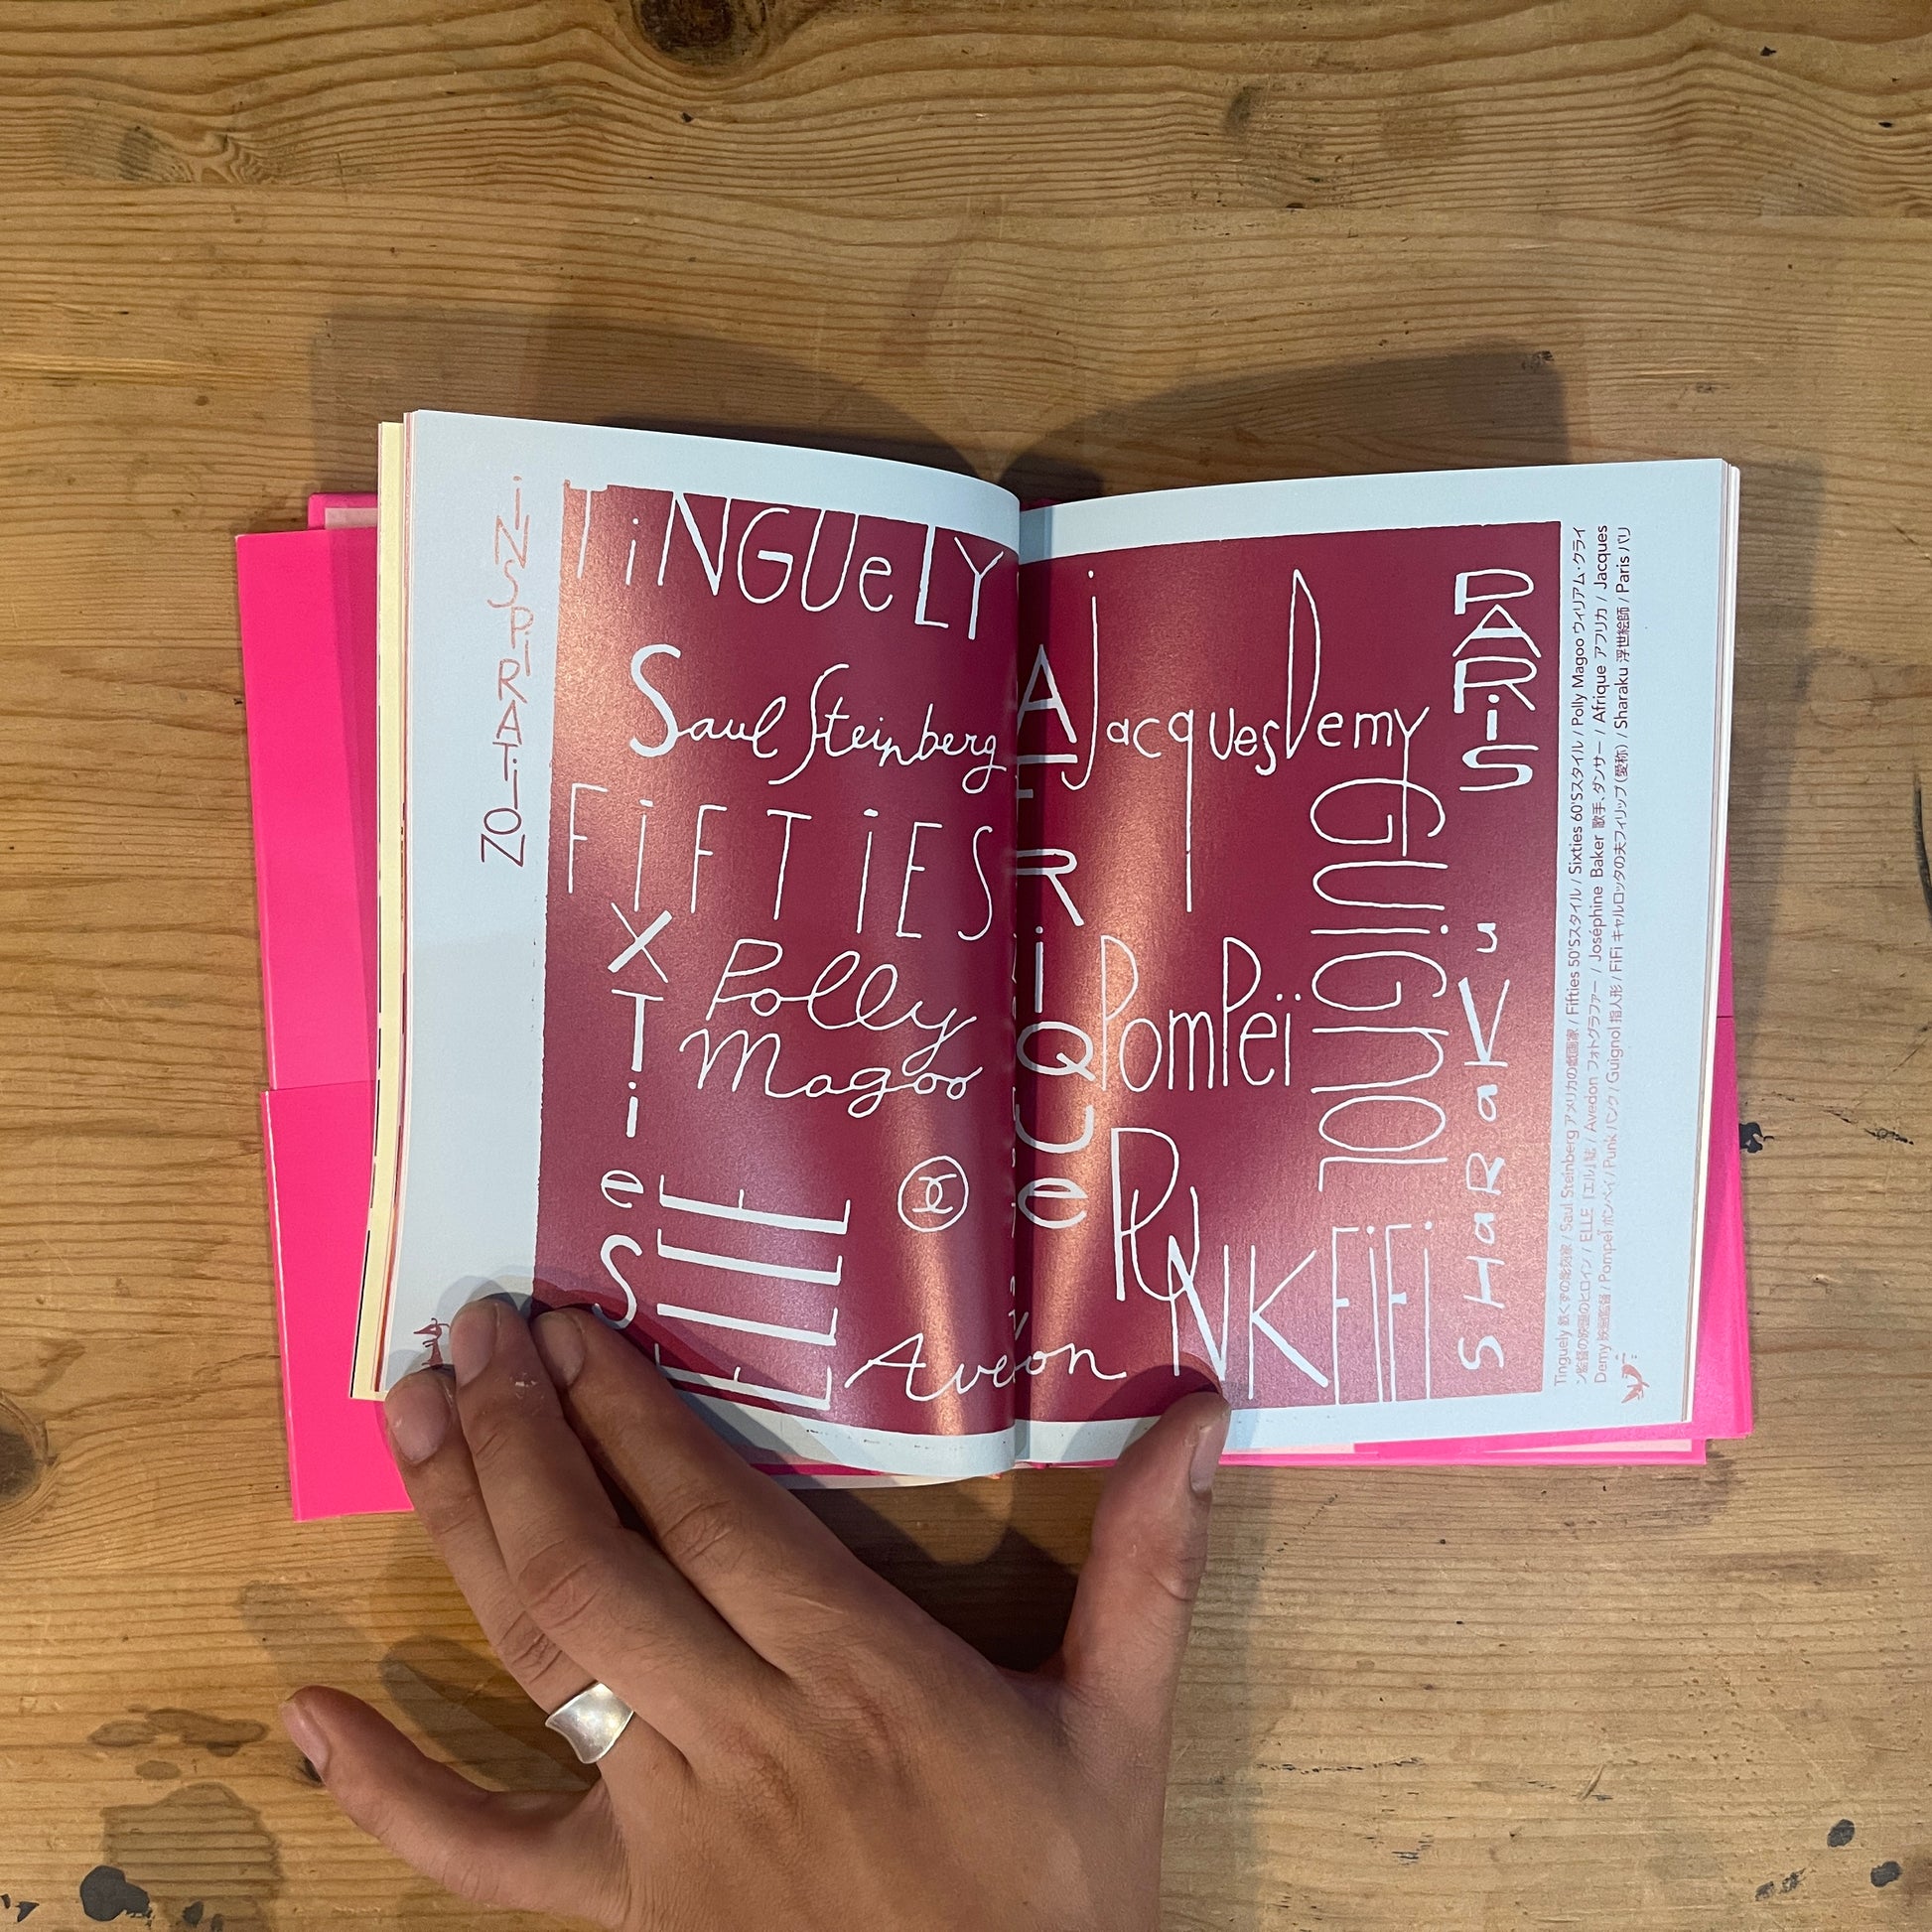 iNSPiRATiON
TiNGUeLY
Saul Steinberg
FiFTiES
XTieS
Polly
Magoo
ELLE
Avedon
AFRiQUe
Jacques Demy
PARiS
GUiGNOL
PomPeï
PUNK
FiFi
SHaRaKu
Tinguely 鉄くずの彫刻家 / Saul Steinberg アメリカの戯画家 / Fifties 50'Sスタイル / Sixties 60'Sスタイル / Polly Magoo ウィリアム・クライ
ン監督の映画のヒロイン / ELLE 『エル』誌 / Avedon フォトグラファー / Joséphine Baker 歌手、ダンサー / Afrique アフリカ / Jacques
Demy 映画監督 / Pompeï ポンペイ / Punk パンク / Guignol 指人形 / FiFi キャルロッタの夫フィリップ（愛称） / Sharaku 浮世絵師 / Paris パリ